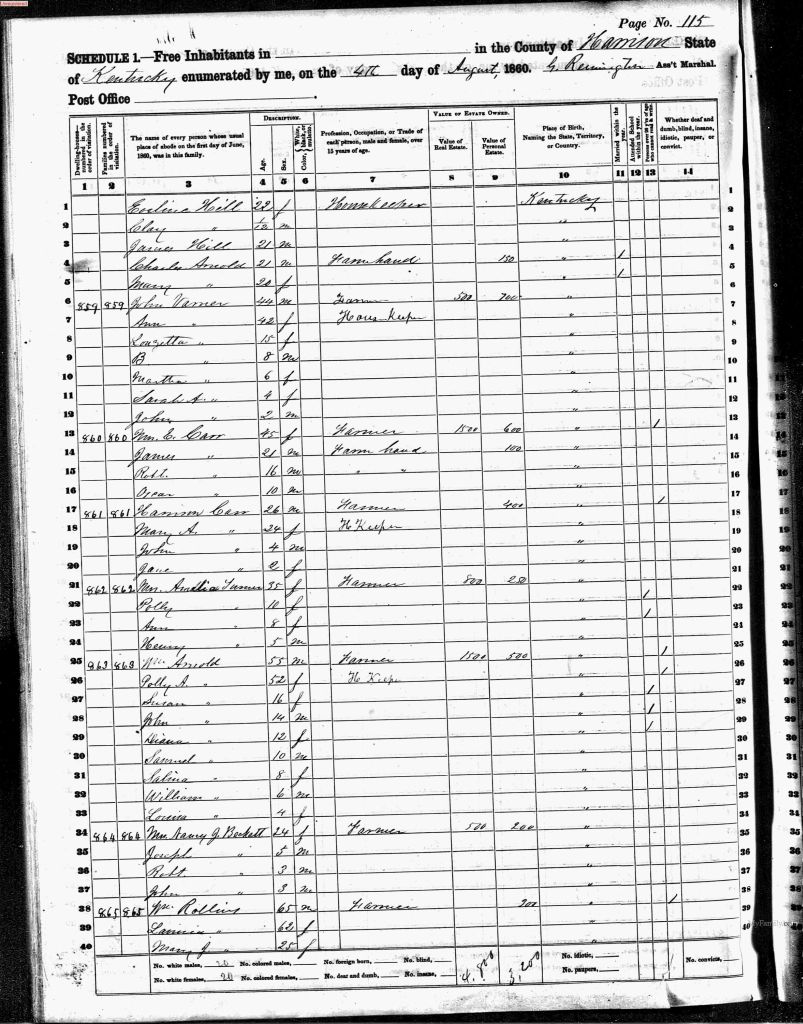 Page No. 115
SCHEDULE 1.—Free Inhabitants in in the County of Harrison State
of Kentucky enumerated by me, on the 4th day of August, 1860. G. Remington Ass't Marshal.
Post Office
Dwelling-houses—numbered in the order of visitation.
Families numbered in the order of visitation.
The name of every person whose usual place of abode on the first day of June, 1860, was in this family.
DESCRIPTION.
Age.
Sex.
Color, White, black, or mulatto.
Profession, Occupation, or Trade of each person, male and female, over 15 years of age.
VALUE OF ESTATE OWNED.
Value of Real Estate.
Value of Personal Estate.
Place of Birth, Naming the State, Territory, or Country.
Married within the year.
Attended School within the year.
Persons over 20 y'rs of age who cannot read & write.
Whether deaf and dumb, blind, insane, idiotic, pauper, or convict.
1 2 3 4 5 6 7 8 9 10 11 12 13 14
1 Evelina Hill 22 f Housekeeper Kentucky 1
2 Clay " 1/12 m " 2
3 James Hill 21 m " 3
4 Charles Arnold 21 m Farm hand 150 " 1 4
5 Mary " 20 f " 1 5
6 859 859 John Varner 44 m Farmer 500 700 " 6
7 Ann " 42 f Hous Keeper " 7
8 Louzetta " 15 f " 8
9 B " 8 m " 9
10 Martha " 6 f " 10
11 Sarah A. " 4 f " 11
12 John " 2 m " 12
13 860 860 Wm. C. Carr 45 f Farmer 1500 600 " 1 13
14 James " 21 m Farm hand 100 " 14
15 Robt. " 16 m " " " 15
16 Oscar " 10 m " 16
17 861 861 Harrison Carr 26 m Farmer 400 " 1 17
18 Mary A. " 24 f H Keeper " 18
19 John " 4 m " 19
20 Jane " 2 f " 20
21 862 862 Mrs. Amelia Turner 35 f Farmer 800 250 " 21
22 Polly " 10 f " 1 22
23 Ann " 8 f " 1 23
24 Henry " 5 m " 24
25 863 863 Wm. Arnold 55 m Farmer 1500 500 " 1 25
26 Polly A. " 52 f H Keeper " 1 26
27 Susan " 16 f " 1 27
28 John " 14 m " 1 28
29 Diana " 12 f " 1 29
30 Samuel " 10 m " 30
31 Salina " 8 f " 31
32 William " 6 m " 32
33 Louisa " 4 f " 33
34 864 864 Mrs Nancy J. Beckett 24 f Farmer 500 200 " 34
35 Joseph " 5 m " 35
36 Robt " 3 m " 36
37 John " 3 m " 37
38 865 865 Wm. Rollins 65 m Farmer 200 " 1 38
39 " 62 f " 39
40 Mary J " 25 f " 40
No. white males, 20 No. colored males, No. foreign born, No. blind, 4,800 3,200 No. idiotic,
No. white females, 20 No. colored females, No. deaf and dumb, No. insane, No. paupers, No. convicts,